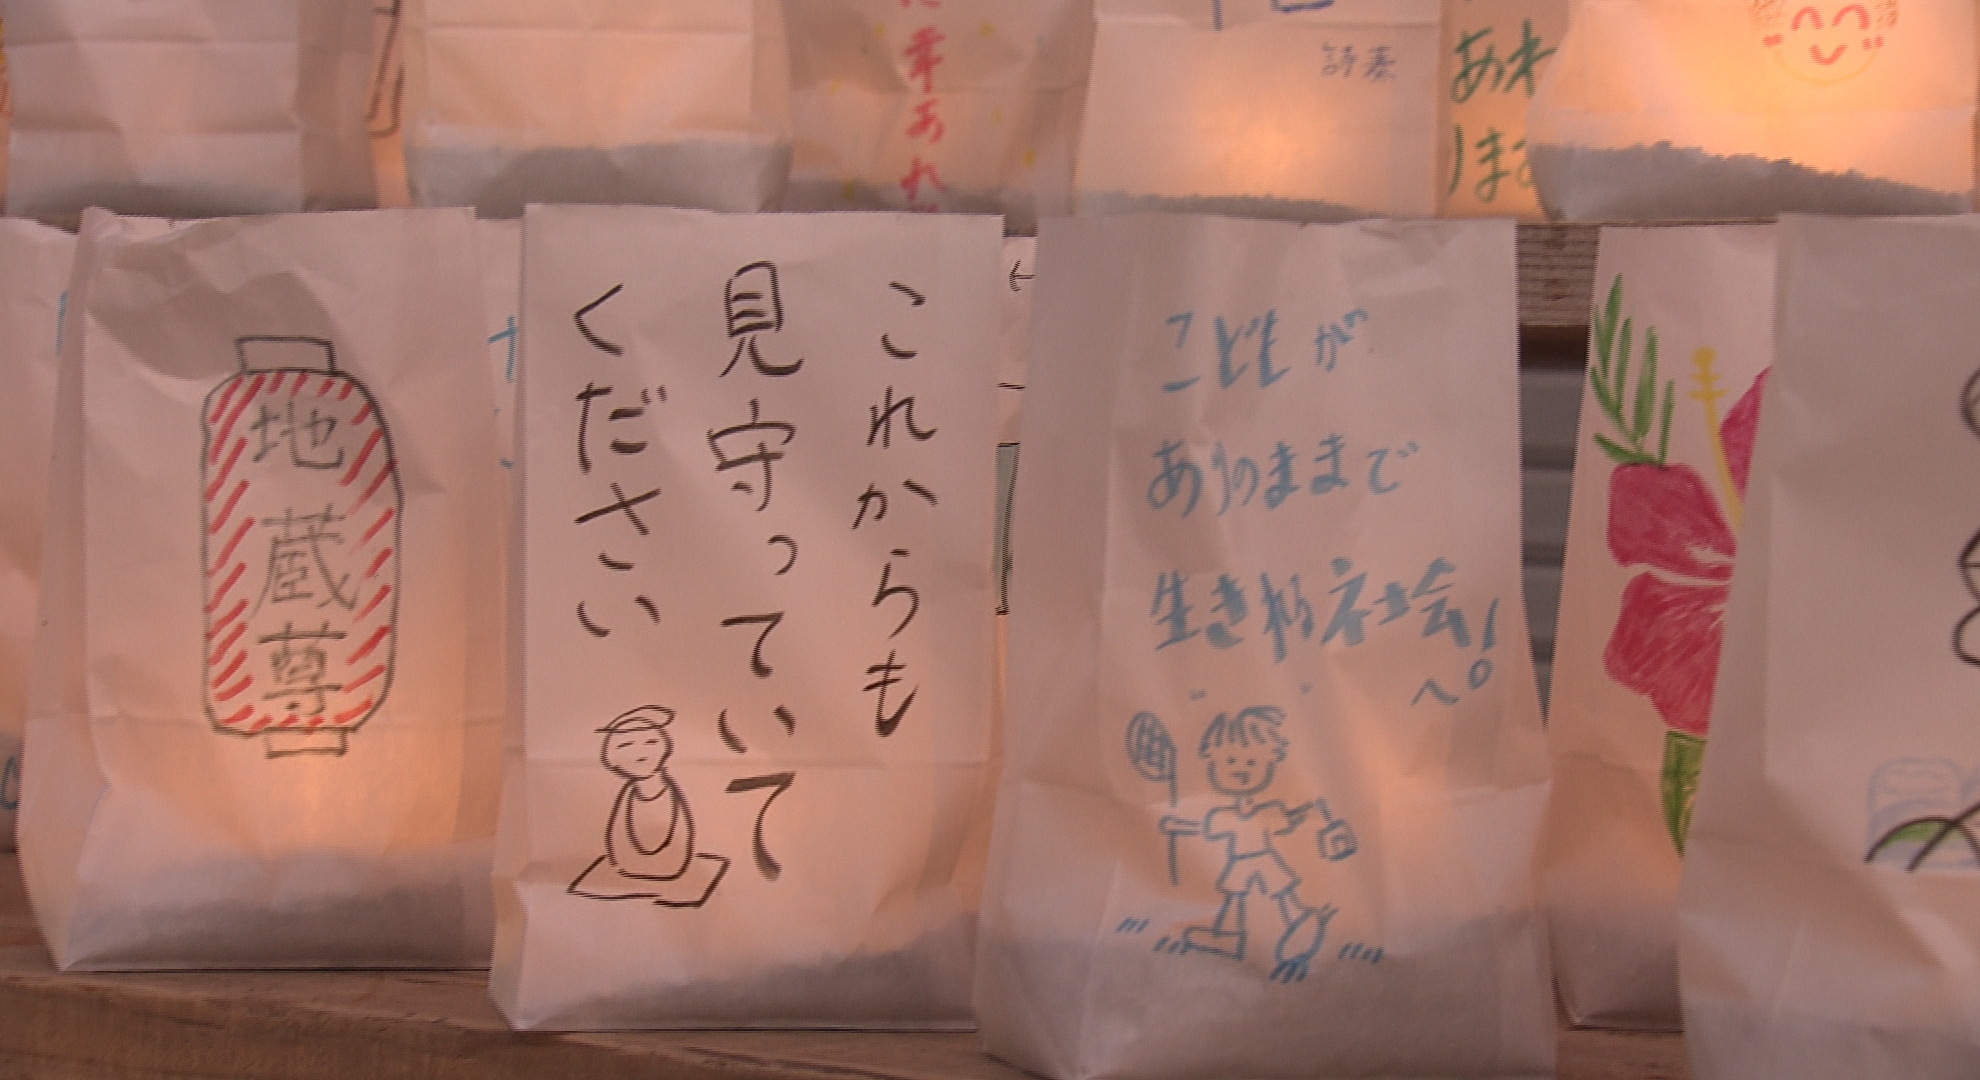 幸あれ
詩基
あれ
地蔵尊
これからも
見守っていて
ください
こどもが
ありのままで
生きれる社会
へ!